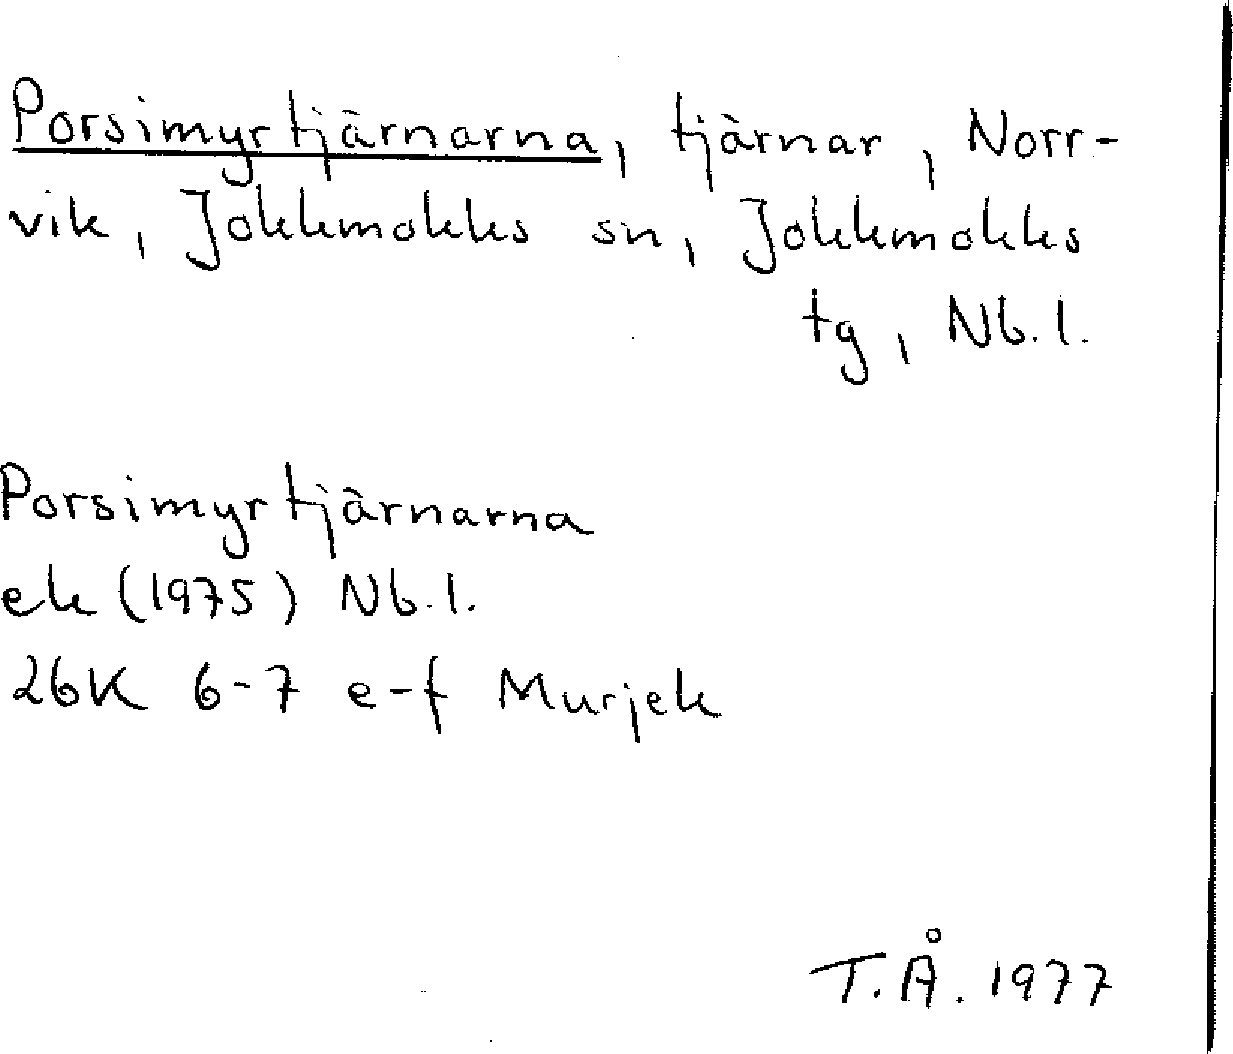 Porsimyrtjärnarna, tjärnar, Norr-
vik, Jokkmokks sn, Jokkmokks
tg, Nb.l.
Porsimyrtjärnarna
ek (1975) Nb.l.
26K 6-7 e-f Murjek
T.Å. 1977